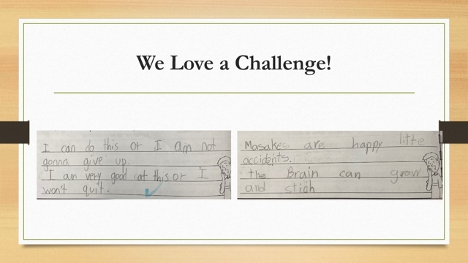 We Love a Challenge!
I can do this or I am not
gonna give up.
I am very good at this or I
won't quit.
Masakes are happy litte
accidents.
the Brain can grow
and stich